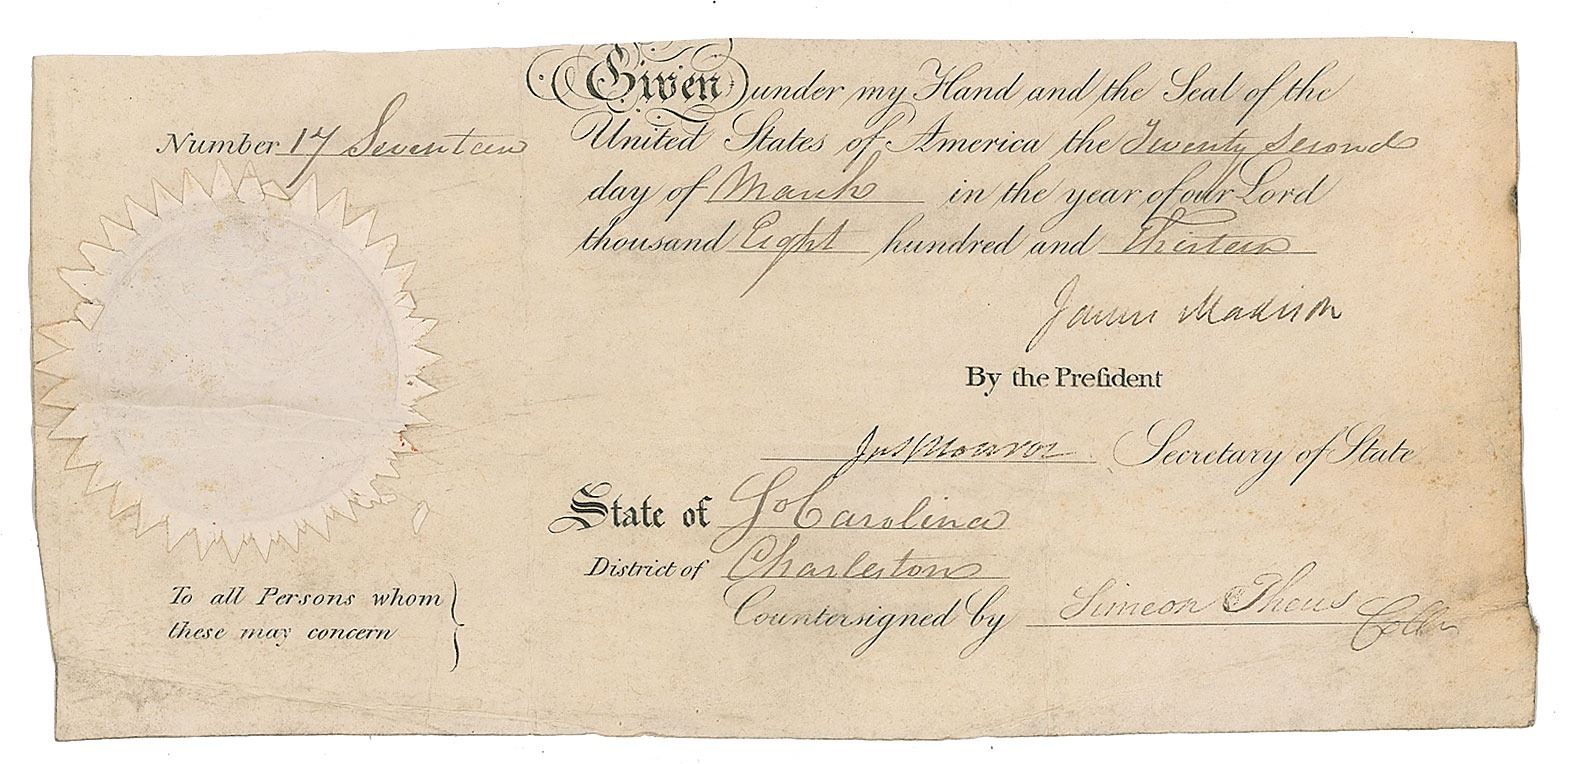 Given under my Hand and the Seal of the
Number 17 Seventeen
United States of America the Twenty Second
day of March in the year of our Lord
thousand Eight hundred and Thirteen
James Madison
By the Preſident
Jas Monroe Secretary of State
State of So Carolina
District of Charleston
To all Persons whom
these may concern
Countersigned by Simeon Theus Collr